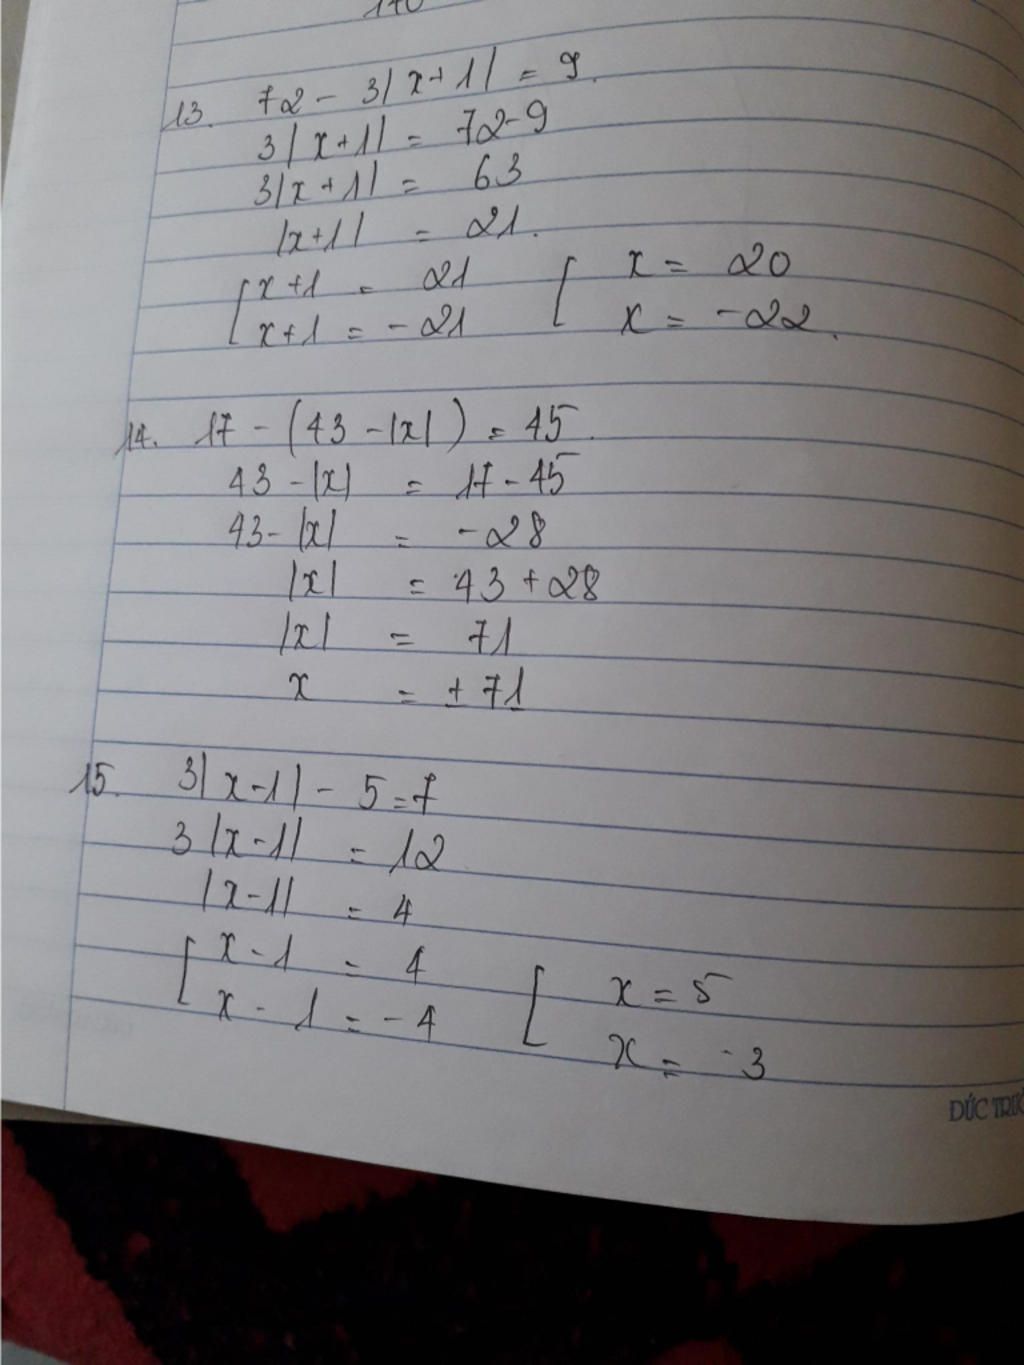 170
13. 72 - 3|x+1| = 9.
3|x+1| = 72-9
3|x+1| = 63
|x+1| = 21.
[x+1 = 21 [ x = 20
x+1 = -21 x = -22.
14. 17 - (43 - |x|) = 45.
43 - |x| = 17 - 45
43 - |x| = -28
|x| = 43 + 28
|x| = 71
x = ± 71
15. 3|x-1| - 5 = 7
3|x-1| = 12
|x-1| = 4
[x-1 = 4 [ x = 5
x - 1 = -4 x = -3
ĐỨC